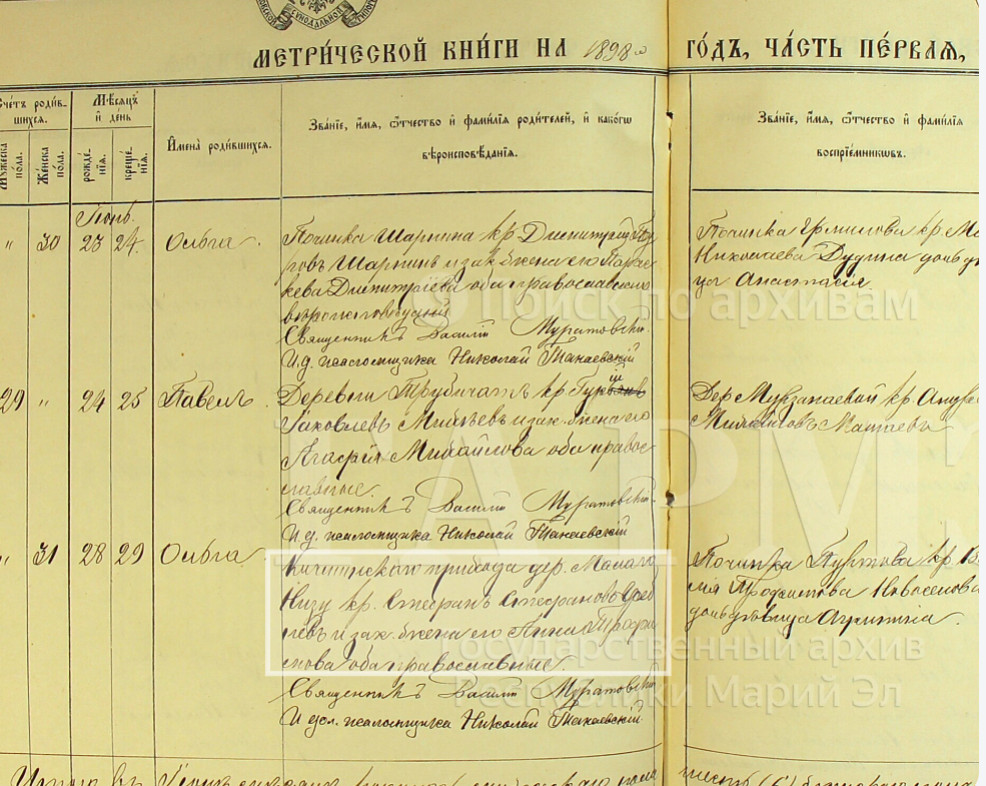 МЕТРИ́ЧЕСКОЙ КНИ́ГИ НА 1898 й ГО́ДЪ, ЧА́СТЬ ПЕ́РВАЯ,
Счетъ роди́в-
шихся.
Му́жеска
по́ла.
Же́нска
по́ла.
Мѣ́сяцъ
и де́нь
рожде́-
нія.
креще́-
нія.
Имена̀ роди́вшихся.
Зва́ніе, и́мя, ѻ́тчество и фами́лія роди́телей, и како́гѡ
вѣроисповѣ́данія.
Зва́ніе, и́мя, ѻ́тчество и фами́лія
воспріе́мникѡвъ.
Іюнь.
" 30 23 24. Ольга.
Починка Шарнина кр. Димитрій
ровъ Шарнинъ и зак. жена его Парас-
кева Димитріева оба православнаго
вѣроисповѣданія
Священникъ Василій Муратовскій.
И.д. псаломщика Николай Танаевскій
Починка Ермилова кр.
Николаева Дудина дочь дѣ
ца Анастасія.
29 " 24 25 Павелъ.
Деревни кр. Гурій
Іаковлевъ и зак. жена его
Агафія Михайлова оба право-
славные.
Священникъ Василій Муратовскій.
И.д. псаломщика Николай Танаевскій
Дер. Мурзанаевой кр. Андре
" 31 28 29 Ольга
прихода дер. Малаго
Низу кр. Стефанъ Стефановъ
и зак. жена его Анна Трофи-
мова оба православные.
Священникъ Василій Муратовскій
И усл. псаломщика Николай Танаевскій.
Починка кр.
Новоселова
дочь дѣвица Агриппина.
Итого въ Іюнѣ
© Поиск по архивам
ГАРМЭ
Государственный архив
Республики Марий Эл